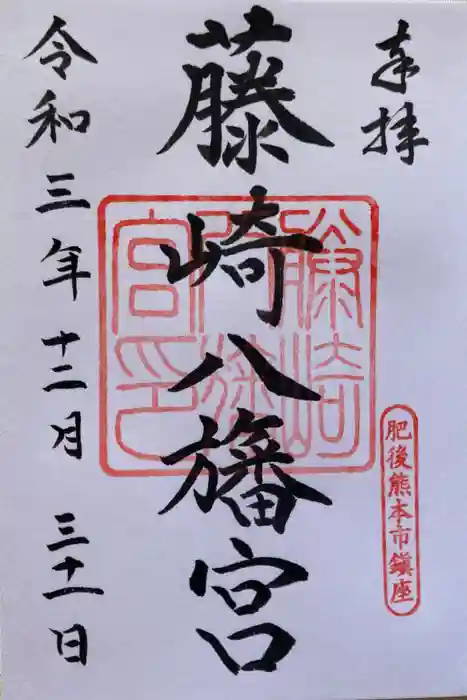 奉拝
藤崎八旛宮
藤崎
八旛
宮印
肥後熊本市鎮座
令和三年十二月三十一日